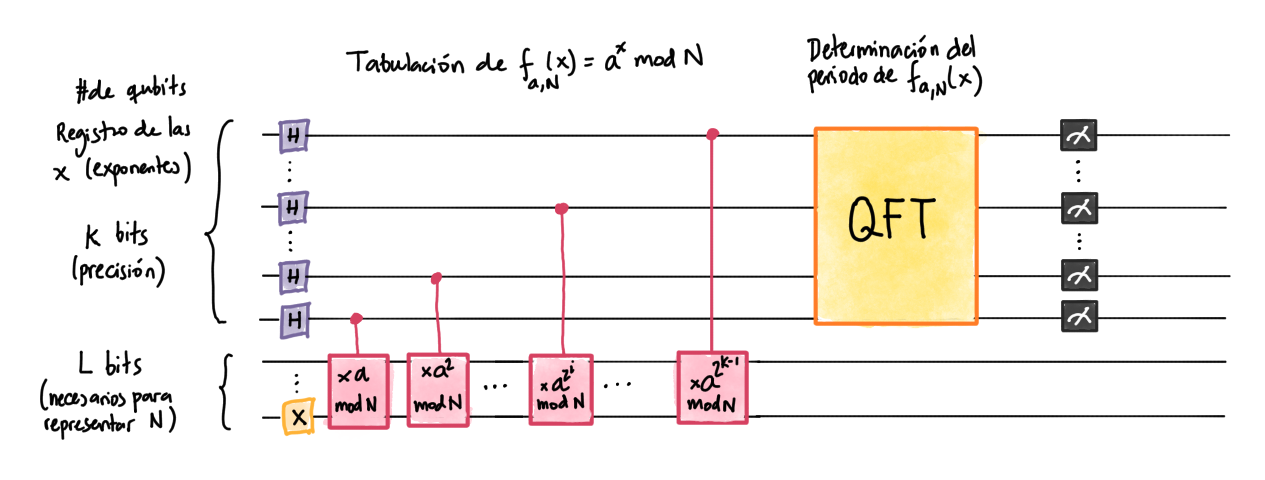 Tabulación de f_{a,N}(x) = a^x mod N
Determinación del
periodo de f_{a,N}(x)
# de qubits
Registro de las
x (exponentes)
K bits
(precisión)
L bits
(necesarios para
representar N)
H
H
H
H
X
xa
mod N
xa^2
mod N
...
xa^{2^i}
mod N
...
xa^{2^{K-1}}
mod N
QFT